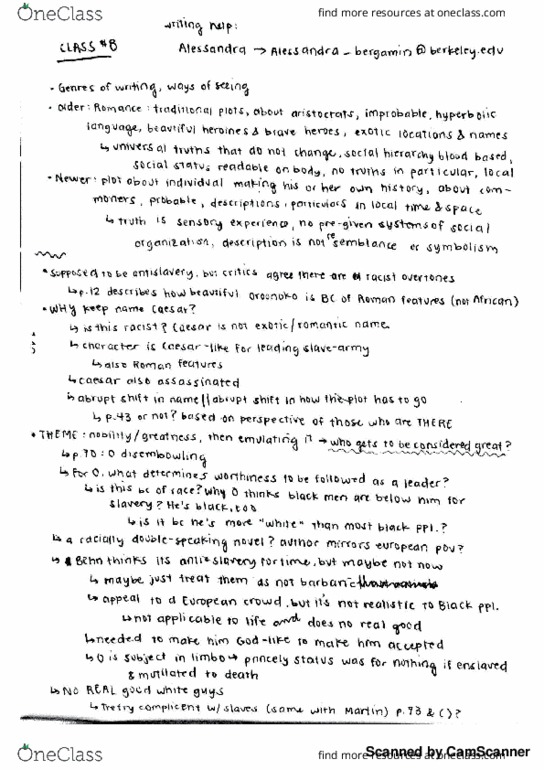 OneClass
find more resources at oneclass.com
writing help:
CLASS #8
Alessandra → Alessandra_bergamin@berkeley.edu
• Genres of writing, ways of seeing
• Older: Romance: traditional plots, about aristocrats, improbable, hyperbolic
language, beautiful heroines & brave heroes, exotic locations & names
↳ universal truths that do not change, social hierarchy blood based,
social status readable on body, no truths in particular, local
• Newer: plot about individual making his or her own history, about com-
moners, probable, descriptions, particulars in local time & space
↳ truth is sensory experience, no pre-given systems of social
organization, description is not resemblance or symbolism
• supposed to be antislavery, but critics agree there are racist overtones
↳ p.12 describes how beautiful oroonoko is BC of Roman features (not African)
• WHY keep name Caesar?
↳ is this racist? Caesar is not exotic/romantic name
↳ character is Caesar-like for leading slave-army
↳ also Roman features
↳ caesar also assassinated
↳ abrupt shift in name || abrupt shift in how the plot has to go
↳ p.43 or not? based on perspective of those who are THERE
• THEME: nobility/greatness, then emulating it → who gets to be considered great?
↳ p.70: O disembowling
↳ For O, what determines worthiness to be followed as a leader?
↳ is this bc of race? Why O thinks black men are below him for
slavery? He's black, too
↳ is it bc he's more "white" than most black ppl.?
↳ a racially double-speaking novel? author mirrors european pov?
↳ Behn thinks its anti-slavery for time, but maybe not now
↳ maybe just treat them as not barbaric
↳ appeal to a European crowd, but it's not realistic to Black ppl.
↳ not applicable to life and does no real good
↳ needed to make him God-like to make him accepted
↳ O is subject in limbo → princely status was for nothing if enslaved
& mutilated to death
↳ NO REAL good white guys
↳ Trefry complicent w/ slaves (same with Martin) p.73 & ( )?
Scanned by CamScanner
OneClass
find more resources at oneclass.com